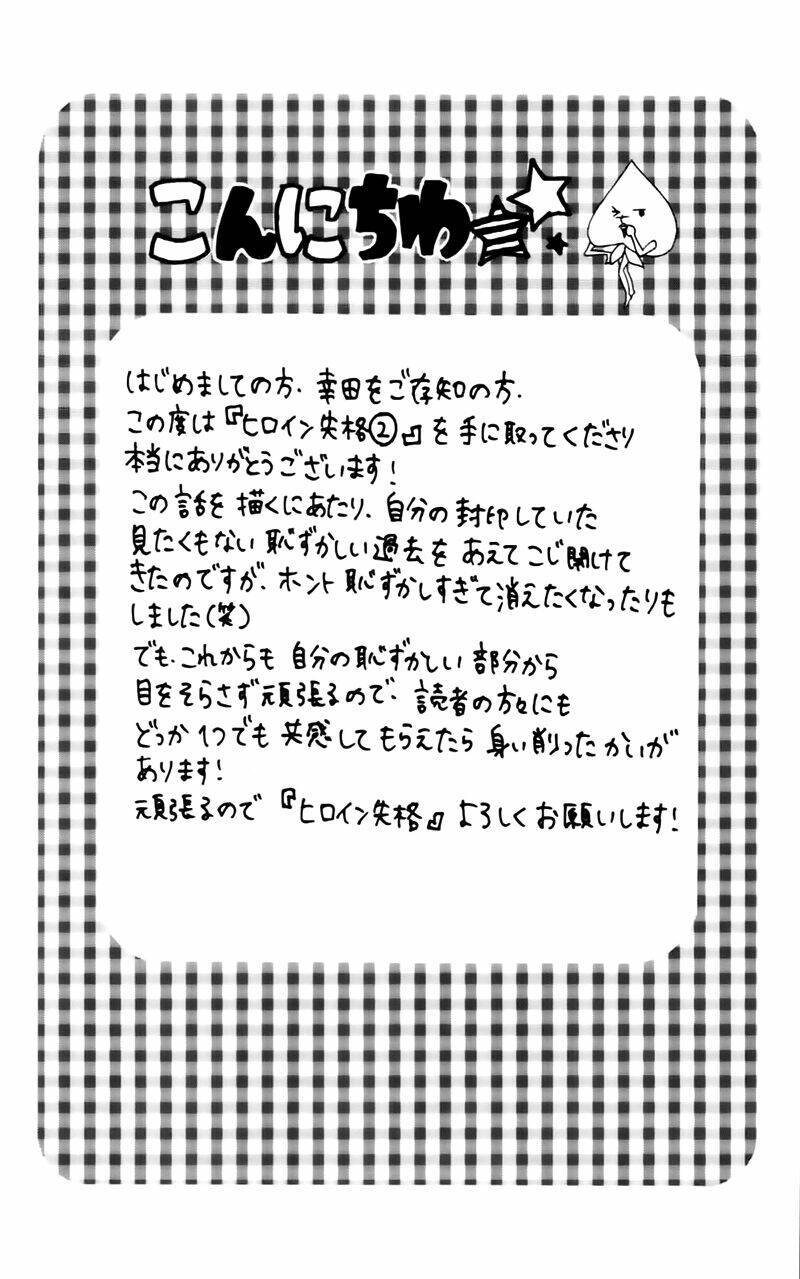 こんにちわ
はじめましての方、幸田をご存知の方、
この度は『ヒロイン失格②』を手に取ってくださり
本当にありがとうございます!
この話を描くにあたり、自分の封印していた
見たくもない恥ずかしい過去をあえてこじ開けて
きたのですが、ホント恥ずかしすぎて消えたくなったりも
しました(笑)
でも、これからも自分の恥ずかしい部分から
目をそらさず頑張るので、読者の方々にも
どっか1つでも共感してもらえたら身い削ったかいが
あります!
頑張るので『ヒロイン失格』よろしくお願いします!